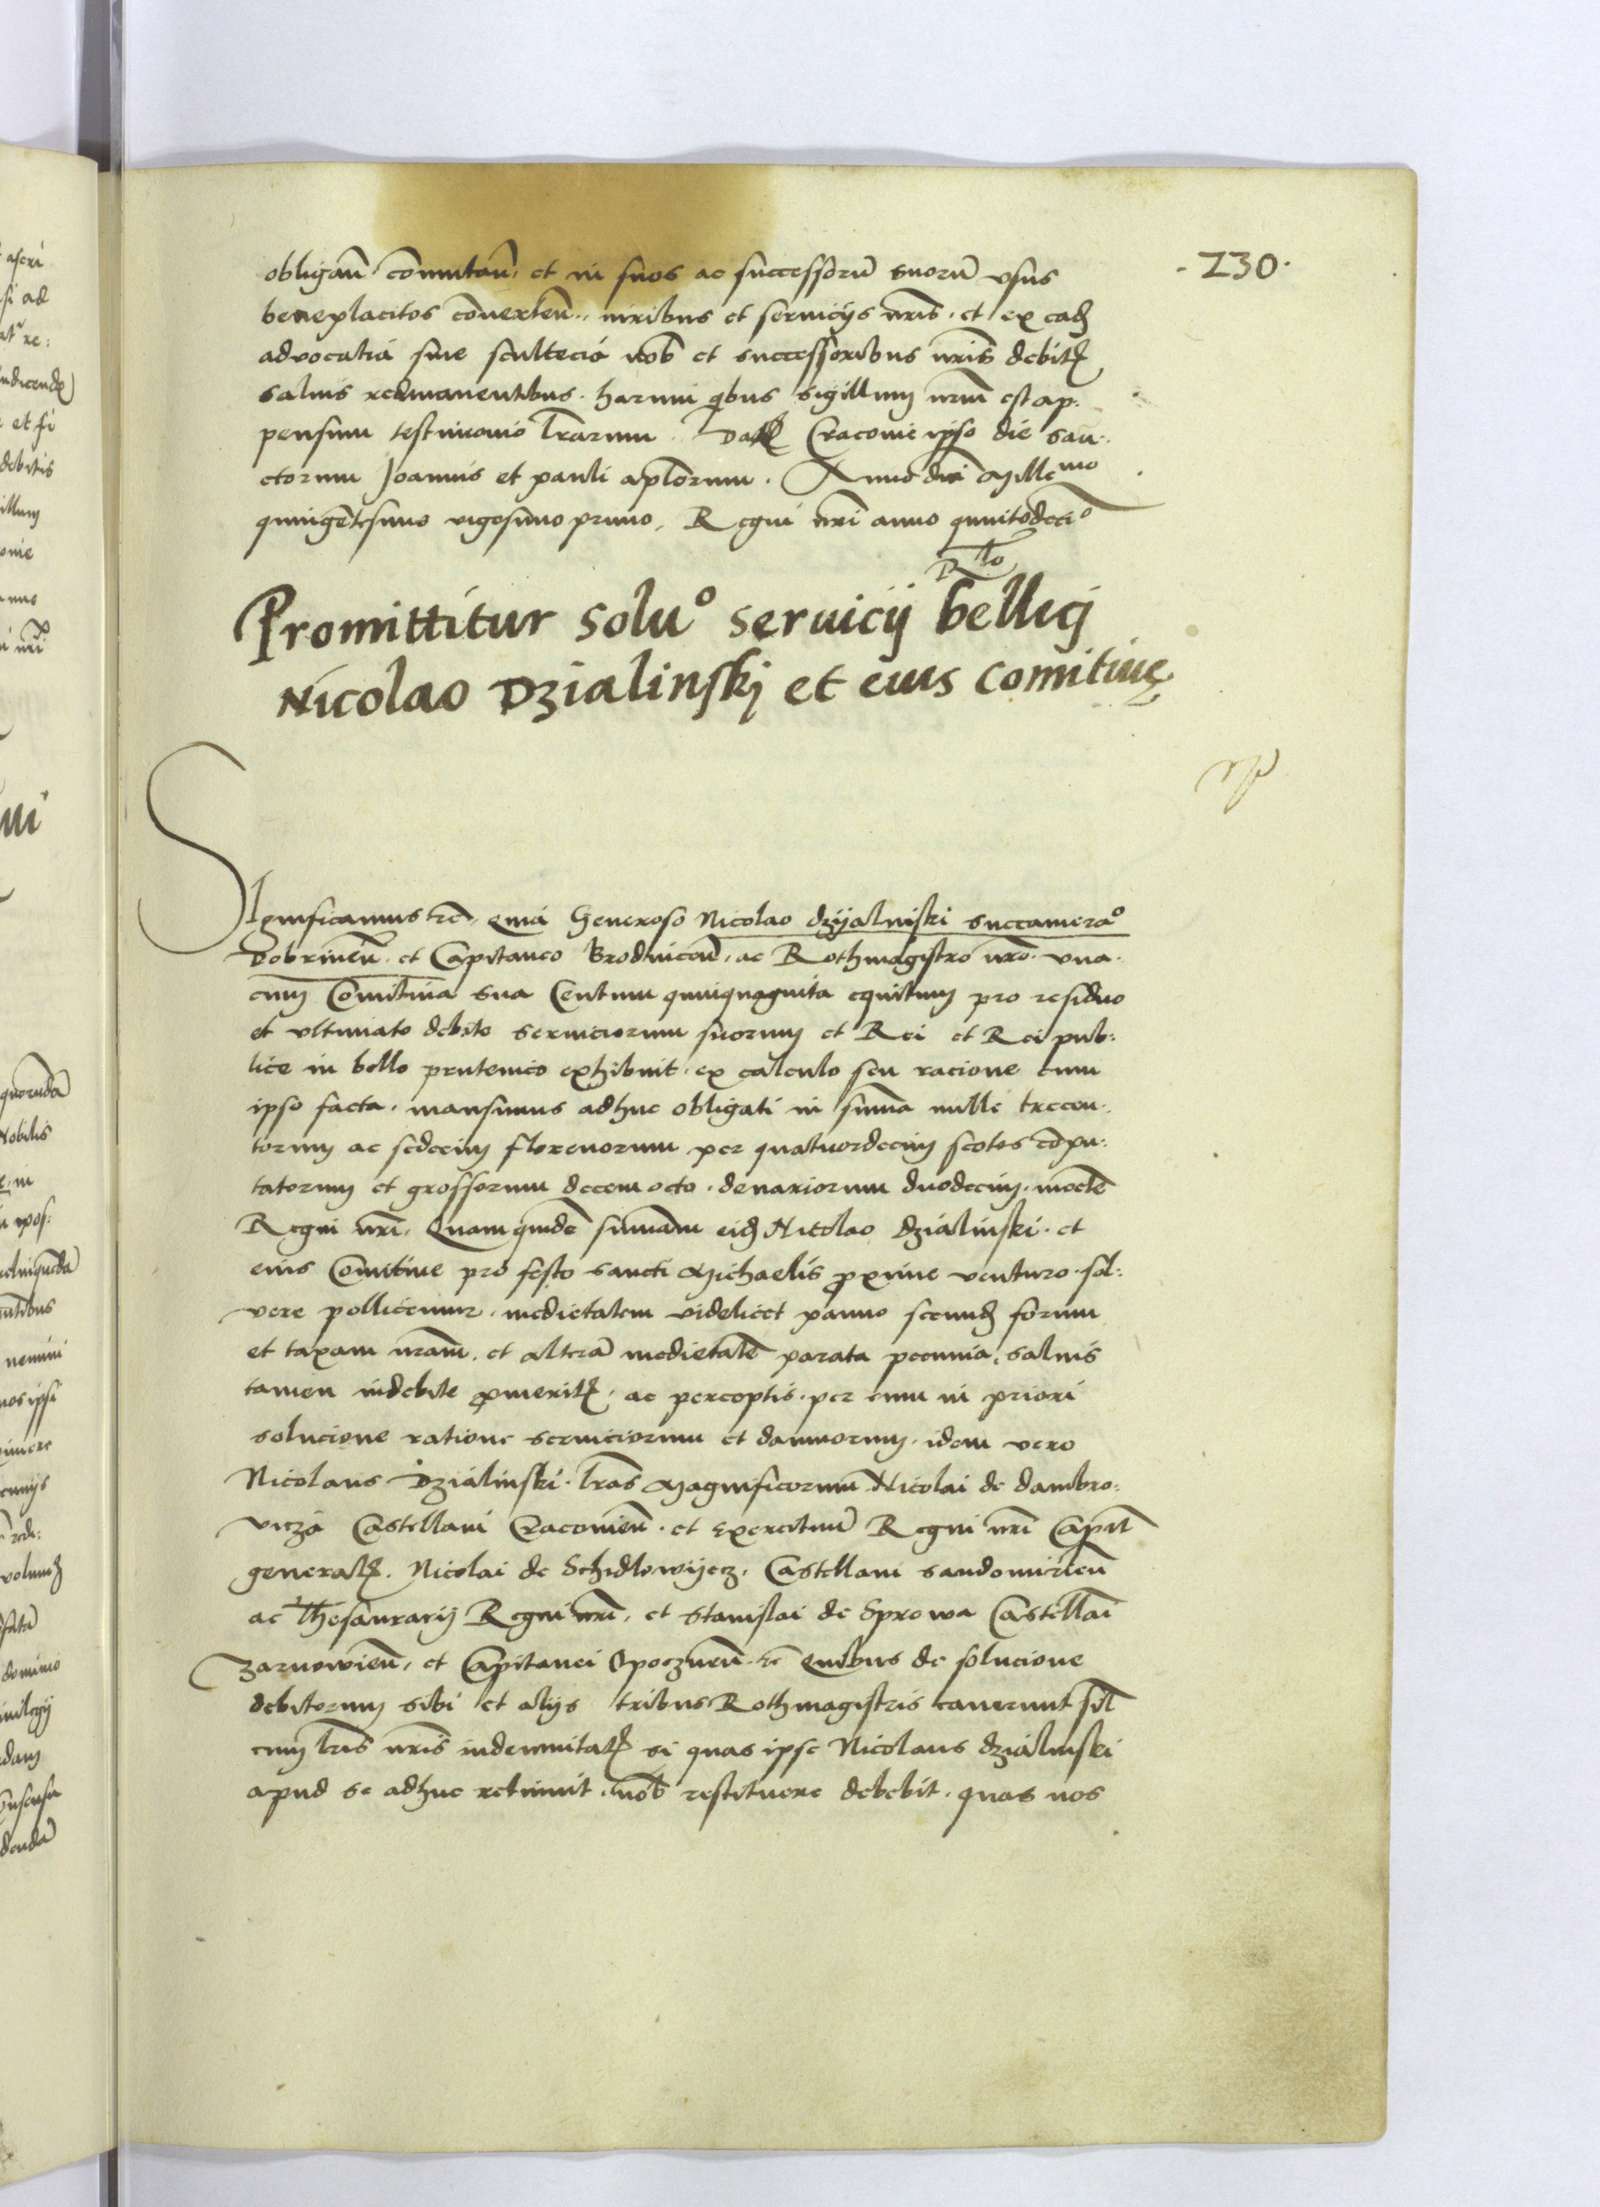 ·230·
obligañ comutañ, et in suos ac successorũ suorũ vsus
beneplacitos conuerteñ, iuribus et seruicijs nr̃is. et ex eadȝ
advocatia siue scultecia nob̃ et successoribus nr̃is debitȝ
saluis remanentibus. harum qibus sigillum nr̃um est ap-
pensum testimonio lr̃arum. Datȝ Cracouie ipso die San-
ctorum Joannis et pauli aplorum. Anno dni Millemo
quingẽtesimo vigesimo primo, Regni nr̃i anno quintodecio
Rlo
Promittitur soluo seruicij bellicj
Nicolao Dzialinskj et eius comitiuę
SIgnificamus tẽ. quia Generoso Nicolao dzyalinski succamerao
Dobrineñ. et Capitaneo Brodniceñ, ac Rothmagistro nr̃o. vna-
cum Comitiua sua Centum quinquaginta equitum pro residuo
et vltimato debito seruiciorum suorum et Rei et Rei pub-
lice in bello prutenico exhibuit. ex calculo seu racione cum
ipso facta. mansimus adhuc obligati in suma mille trecen-
torum ac sedecim florenorum per quatuordecim scotos copu-
tatorum et grossorum decem octo. denariorum duodecim. monetẽ
Regni nr̃i, Quam quidẽ sumam eidȝ Nicolao dzialinski. et
eius Comitiue pro festo sancti Michaelis proxime venturo. sol-
vere pollicemur. medietatem videlicet panno secundȝ forum
et taxam nr̃am, et alterã medietatẽ parata pecunia, saluis
tamen indebite promeritȝ. ac perceptis. per eum in priori
solucione ratione seruiciorum et damnorum. idem vero
Nicolaus Dzialinski. lr̃as Magnificorum Nicolai de dambro-
vicza Castellani Cracovieñ. et Exercituũ Regni nr̃i Capit̃
generalȝ. Nicolai de Schidlowijecz, Castellani sandomirieñ
ac Thesaurarij Regni nr̃i, et Stanislai de Sprowa Castellani
zarnowieñ, et Capitanei Opoczneñ. tẽ quibus de solucione
debitorum sibi et alijs tribus Rothmagistris cauerunt sil̃
cum lr̃is nr̃is indemnitatȝ si quas ipse Nicolaus dzialinski
apud se adhuc retinuit. nob̃ restituere debebit. quas nos